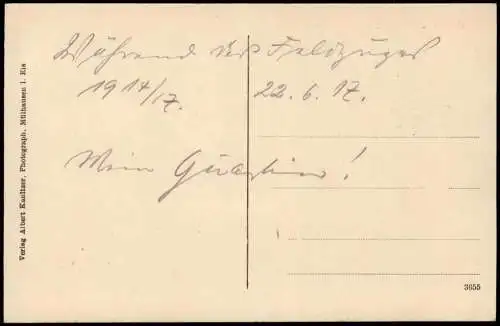 Während des Feldzuges
1914/17. 22.6.17.
Mein Quartier!
Verlag Albert Kanitzer, Photograph, Mülhausen i. Els
3655